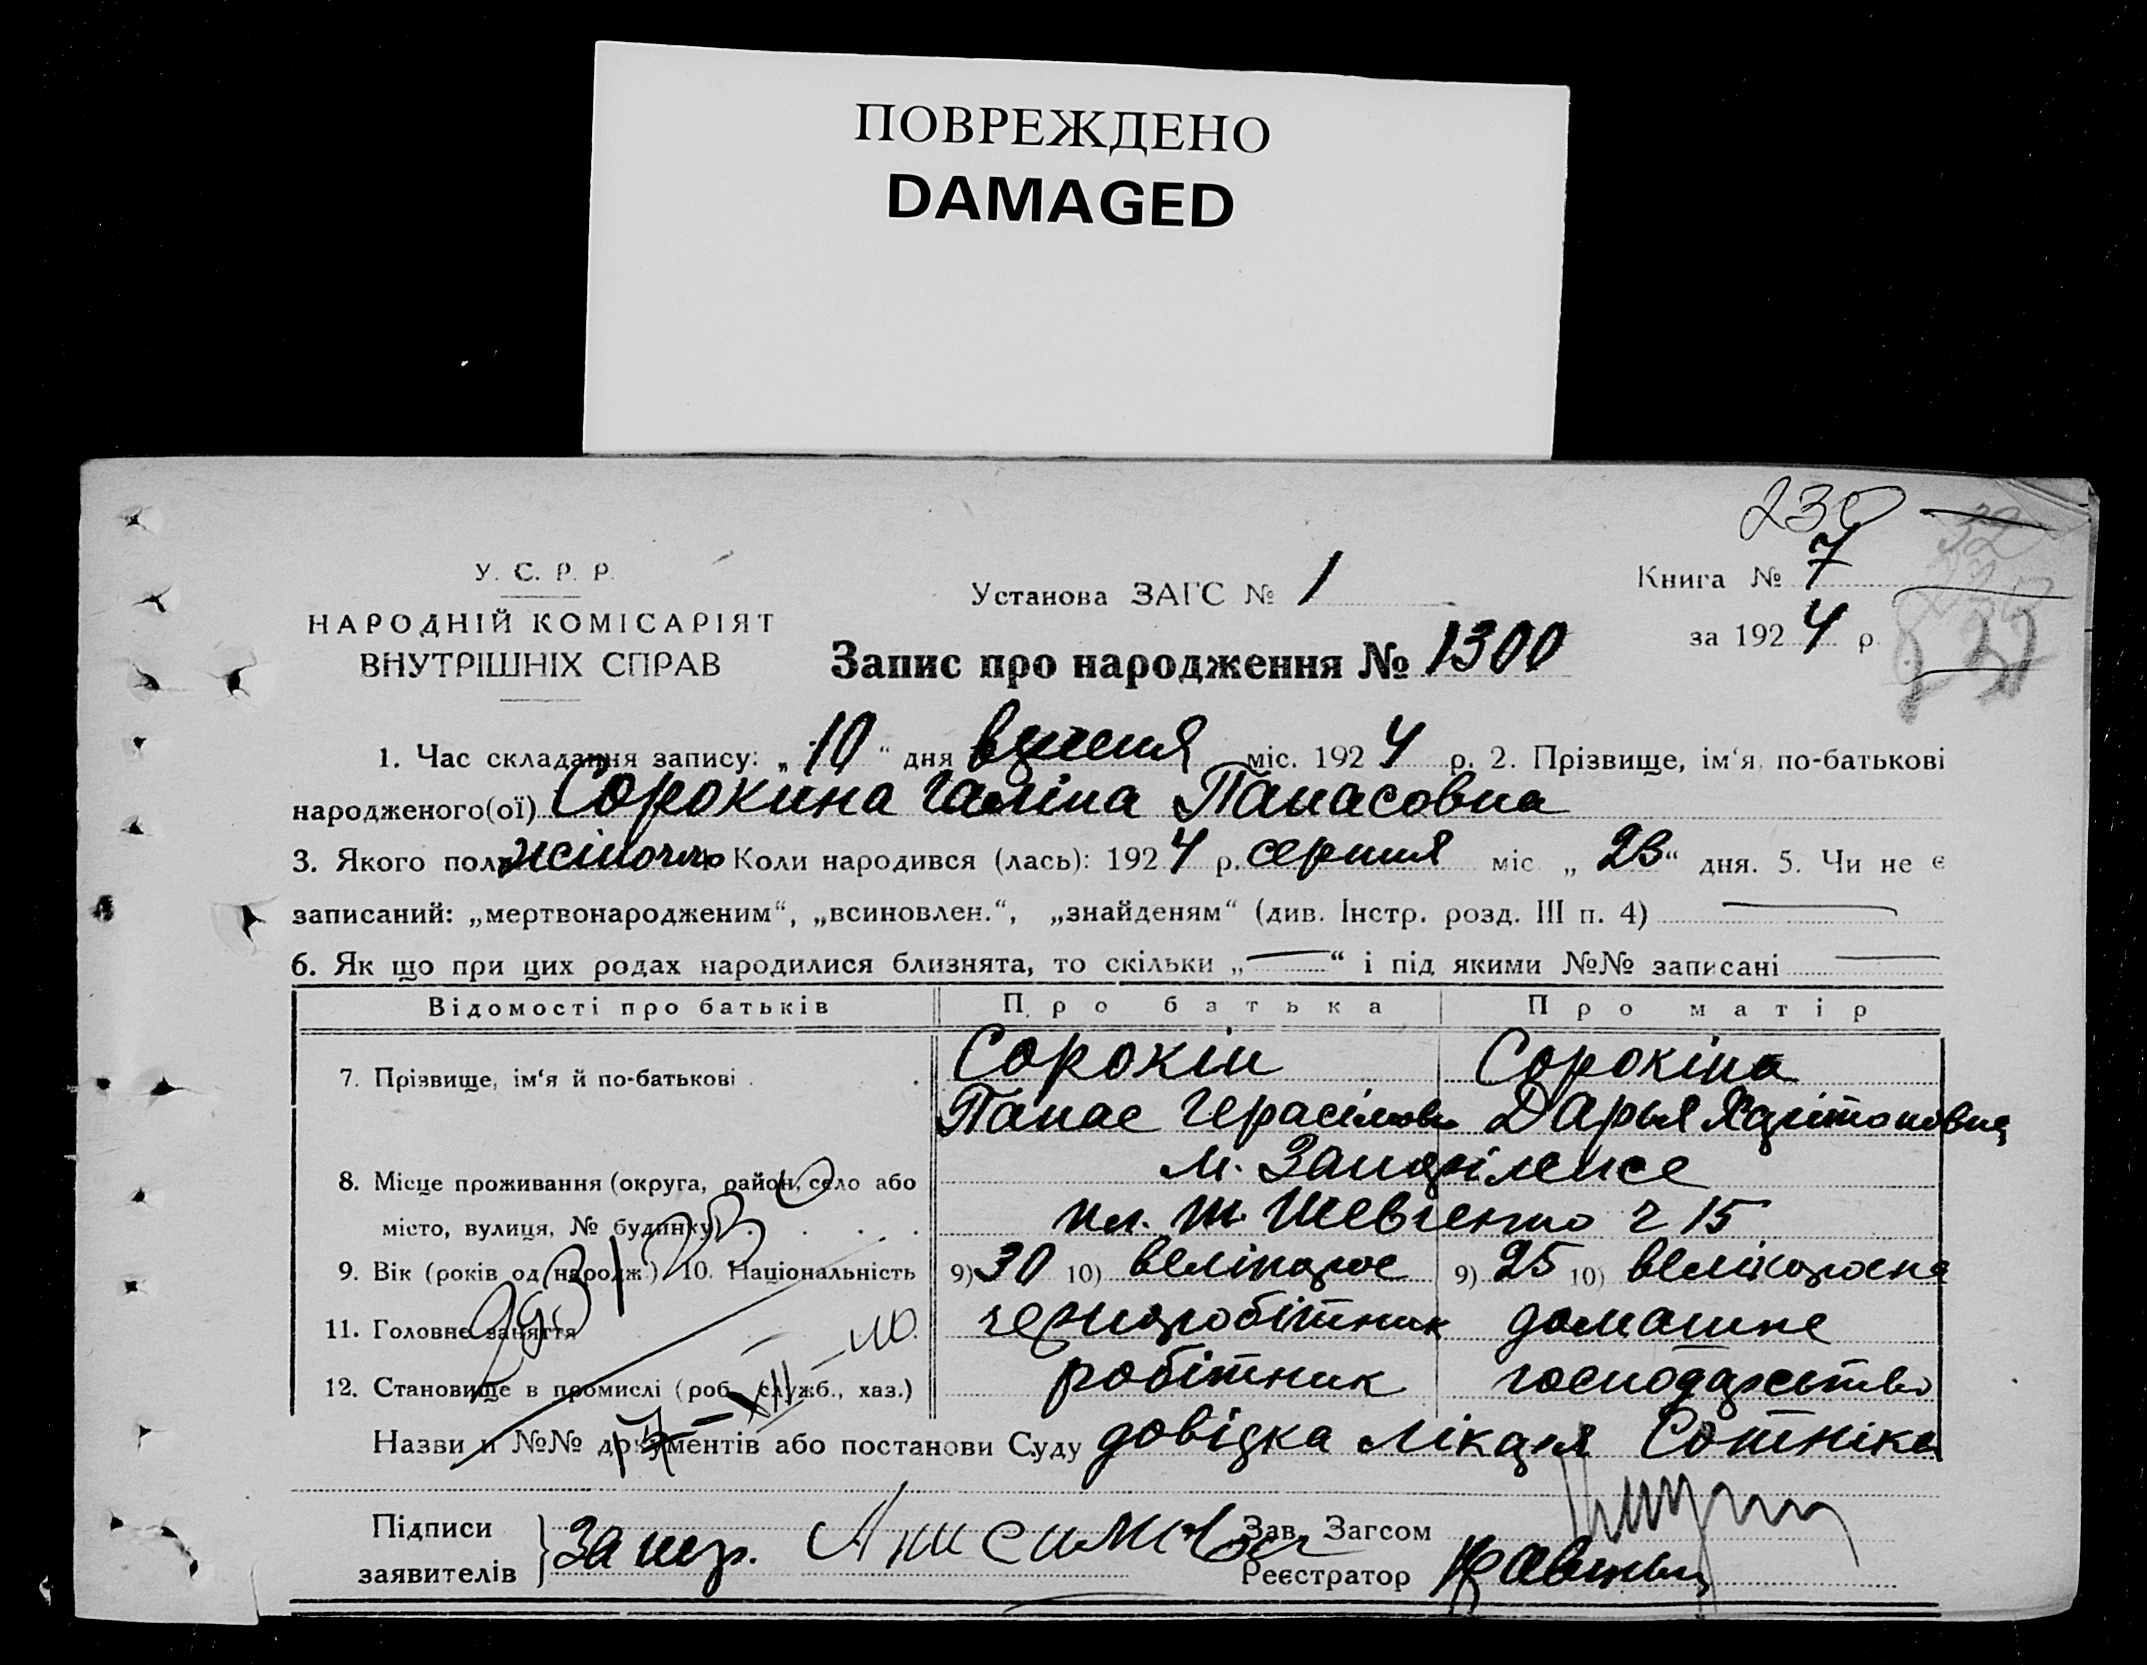 ПОВРЕЖДЕНО
DAMAGED
230
У. С. Р. Р.
НАРОДНІЙ КОМІСАРІЯТ
ВНУТРІШНІХ СПРАВ
Установа ЗАГС № 1
Книга № 7
за 1924 р.
Запис про народження № 1300
1. Час складання запису: „10“ дня вересня міс. 1924 р. 2. Прізвище, ім‘я, по-батькові
народженого(ої) Сорокина Галіна Панасовна
3. Якого пола жіночого 4. Коли народився (лась): 1924 р. серпня міс. „23“ дня. 5. Чи не є
записаний: „мертвонародженим“, „всиновлен.“, „знайденям“ (див. Інстр. розд. III п. 4)
6. Як що при цих родах народилися близнята, то скільки „—“ і під якими №№ записані —
Відомості про батьків Про батька Про матір
7. Прізвище, ім‘я й по-батькові Сорокін Сорокіна
Панас Герасімов Дарья Харітоновна
8. Місце проживання (округа, район, село або
місто, вулиця, № будинку) Шевченко 15
9. Вік (років од народж.) 10. Національність 9) 30 10) велікорос 9) 25 10) велікороска
11. Головне заняття черноробітник домашнє
12. Становище в промислі (роб., служб., хаз.) робітник господарство
Назви й №№ документів або постанови Суду довідка лікаря Сотніка
Підписи
заявителів Анисимова
Зав. Загсом
Реєстратор